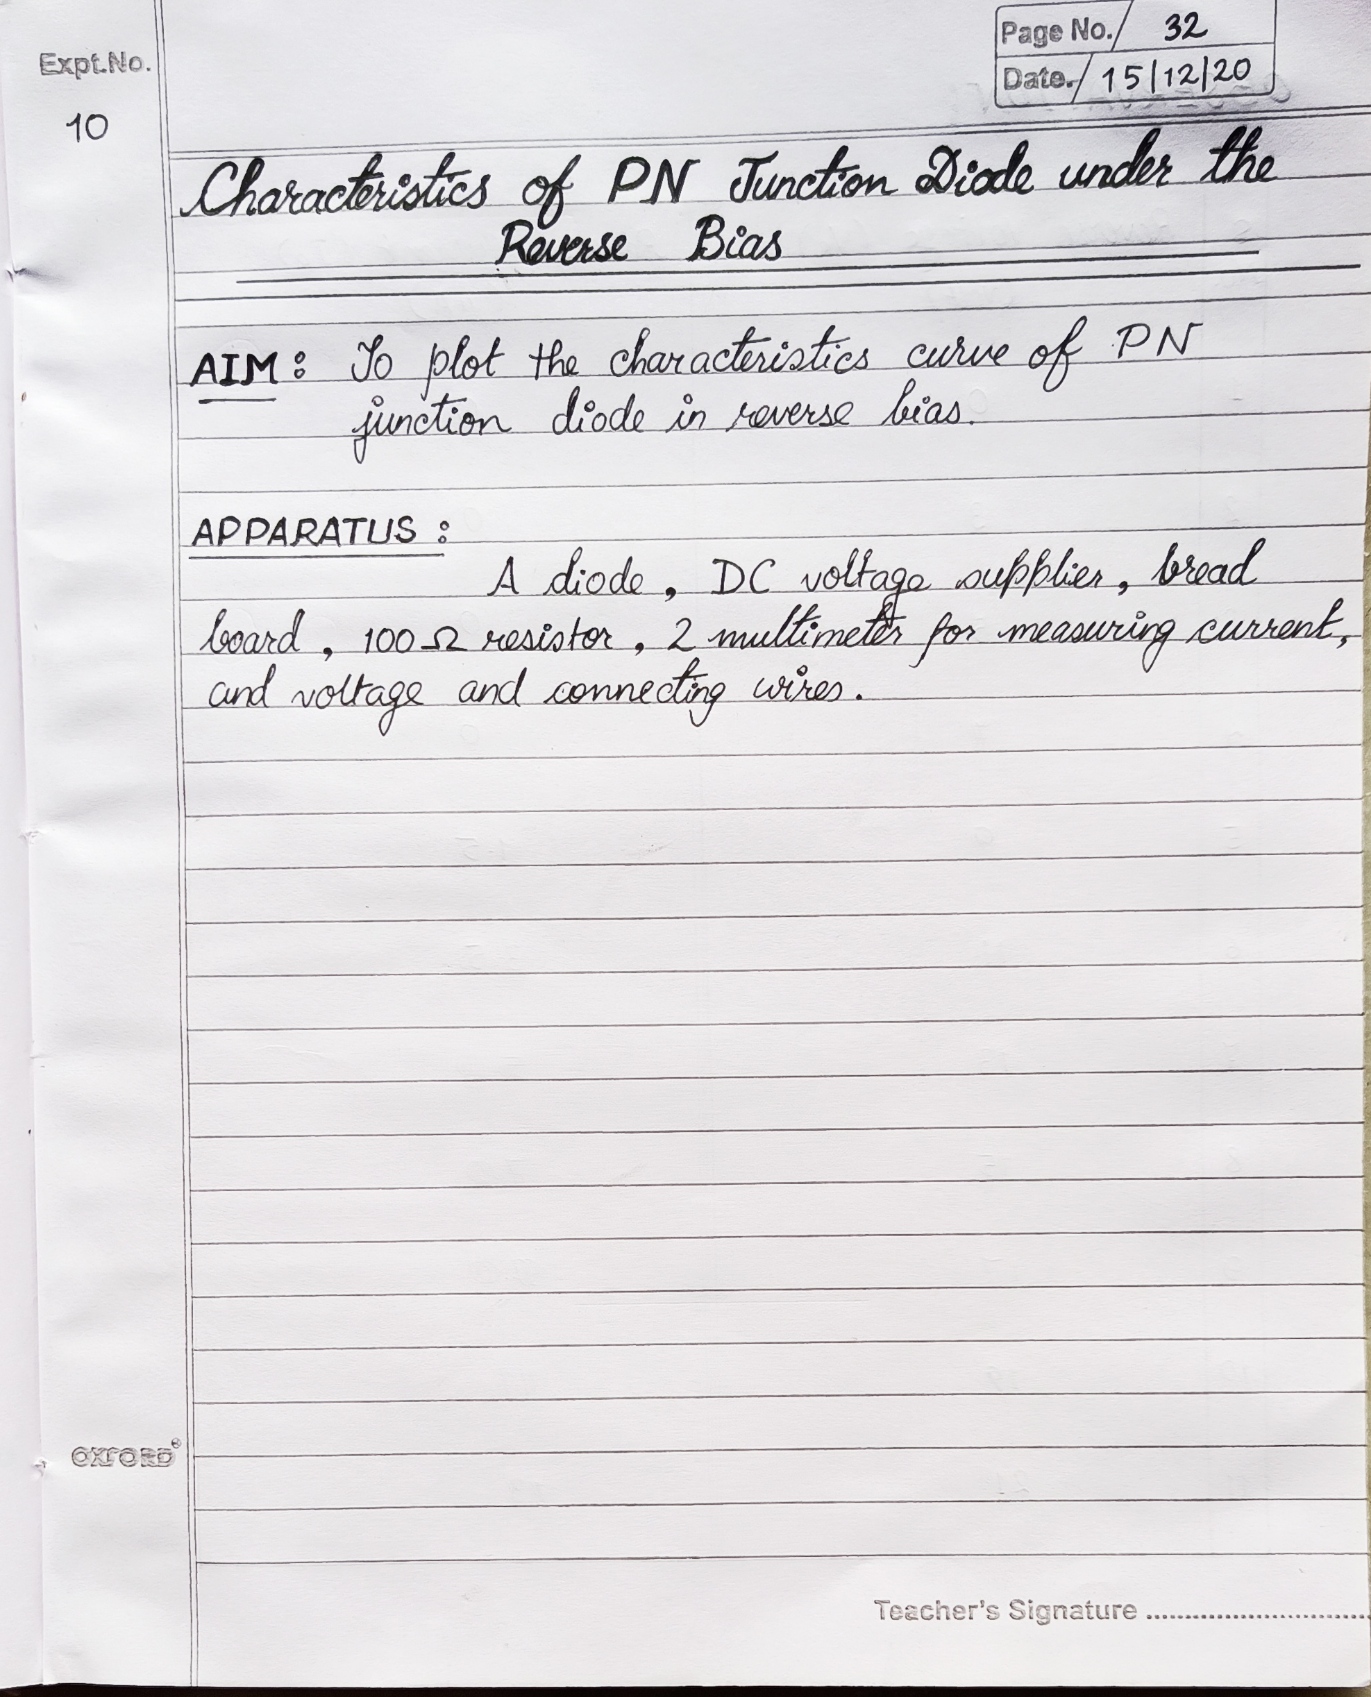 Page No. 32
Expt.No.
Date. 15/12/20
10
Characteristics of PN Junction Diode under the
Reverse Bias
AIM: To plot the characteristics curve of PN
junction diode in reverse bias.
APPARATUS:
A diode, DC voltage supplier, bread
board, 100Ω resistor, 2 multimeter for measuring current,
and voltage and connecting wires.
OXFORD®
Teacher's Signature ..............................